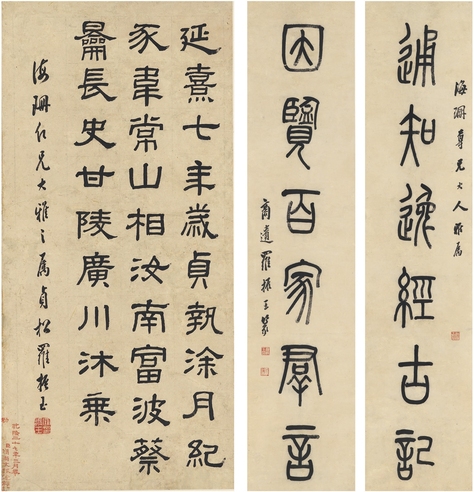 海珊尊兄大人雅属
通知逸經古記
因覽百家群言
商遺羅振玉篆
延熹七年歲貞執涂月紀
豕韋常山相汝南富波蔡
長史甘陵廣川沐乘
海珊仁兄大雅之属貞松羅振玉